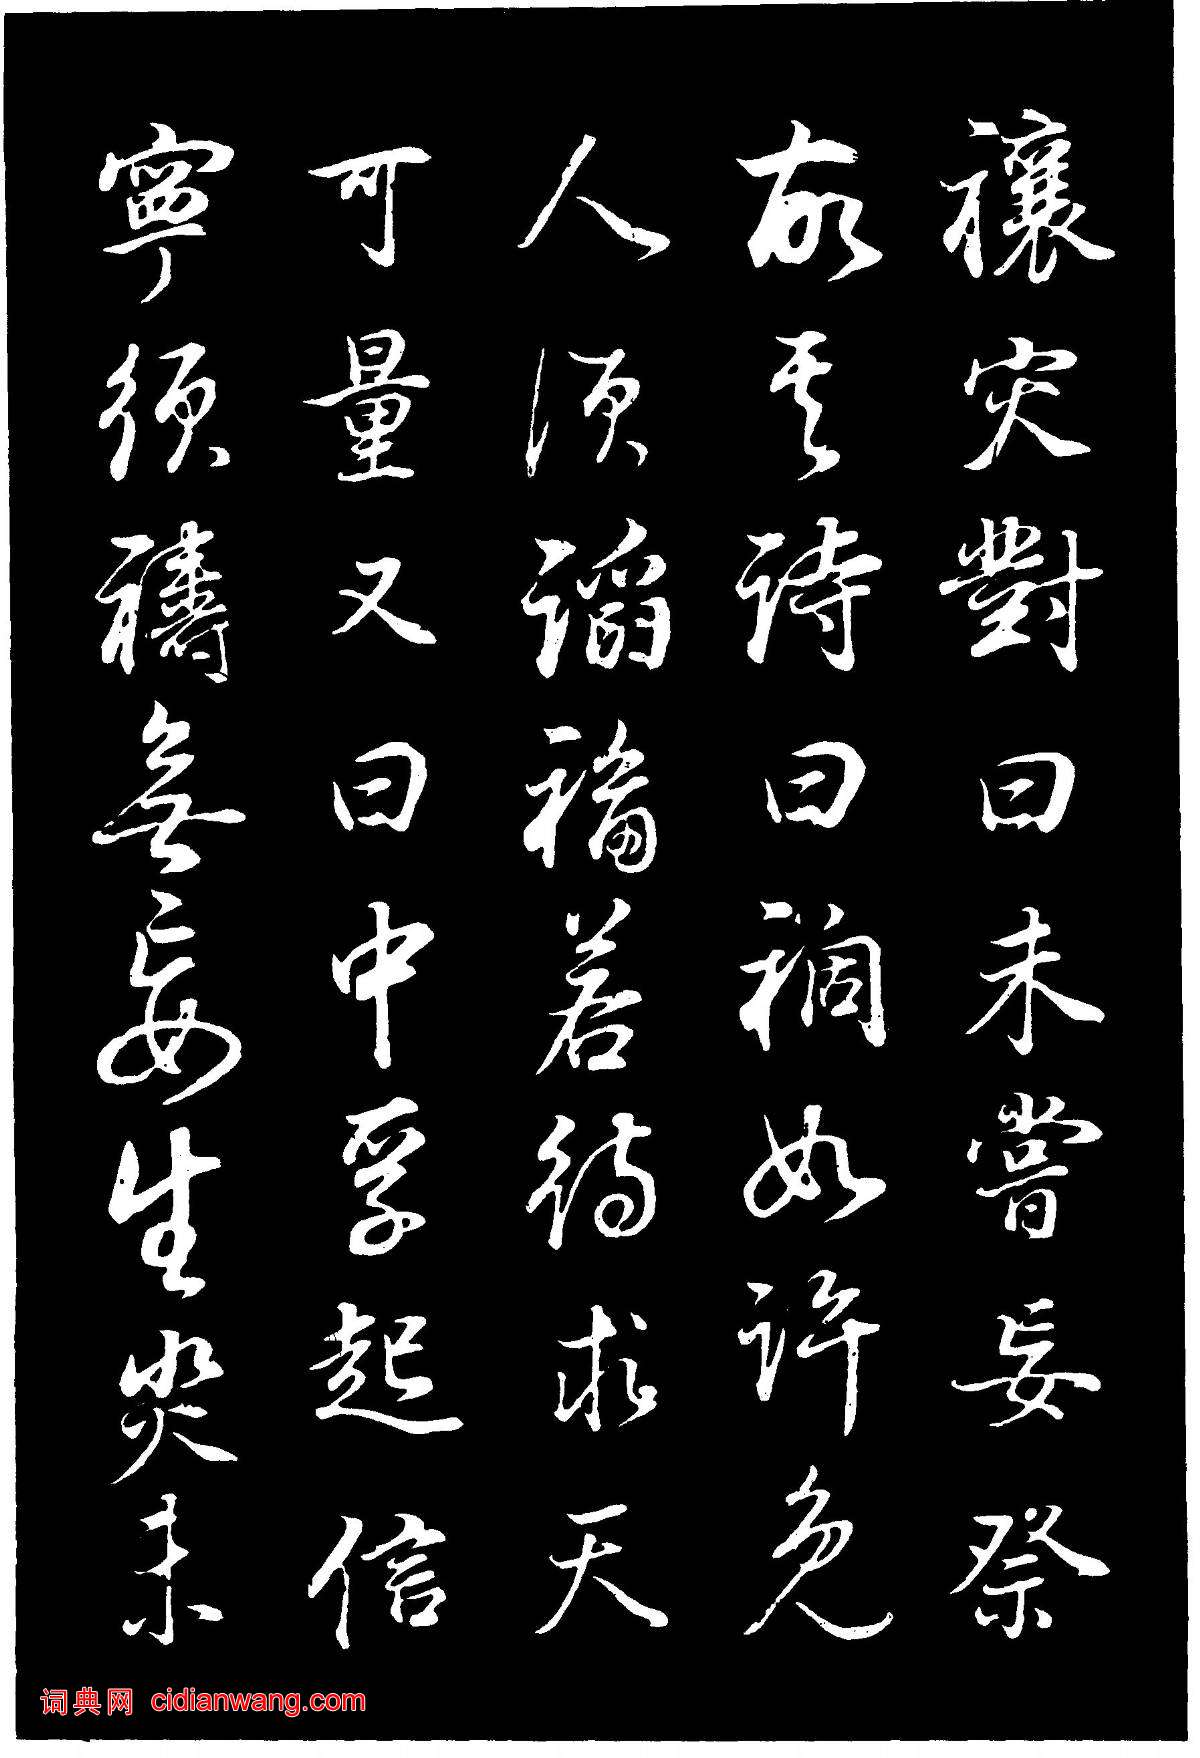 禳灾對曰未嘗妄祭
故其詩曰禍如許免
人須諂福若待求天
可量又曰中孚起信
寧須禱無妄生災未
词典网 cidianwang.com